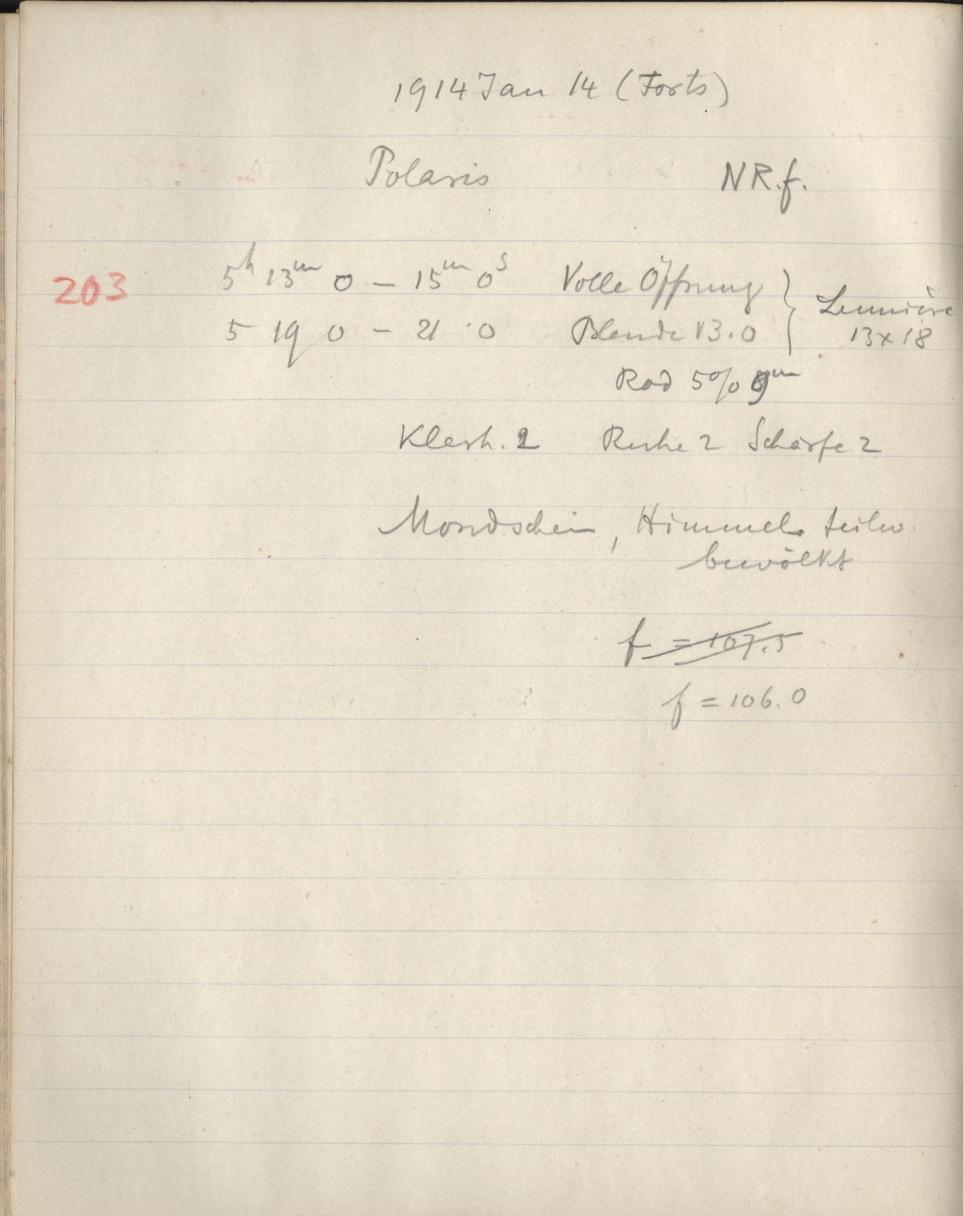 1914 Jan 14 (Forts)
Polaris NR.f.
203 5h 13m 0 – 15m 0s Volle Öffnung
5 19 0 – 21 0 Blende 13.0 } Lumière 13x18
Rad 5% 9m
Klarh. 2 Ruhe 2 Schärfe 2
Mondschein, Himmel teilw.
bewölkt
f = 107.5
f = 106.0